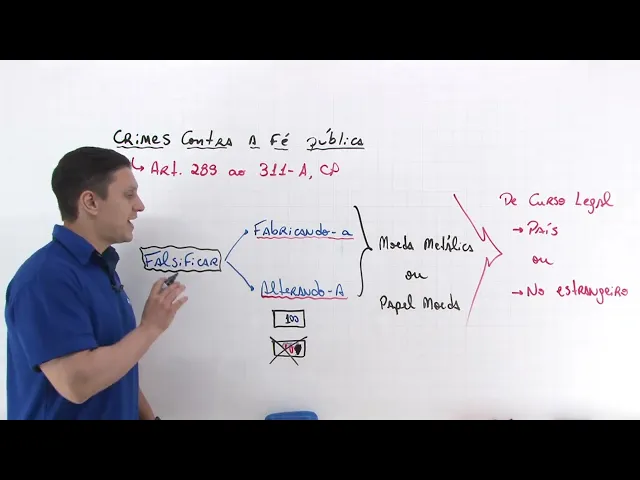 CRIMES CONTRA A FÉ PÚBLICA
↳ ART. 289 AO 311-A, CP
FALSIFICAR
FABRICANDO-A
ALTERANDO-A
100
MOEDA METÁLICA
OU
PAPEL MOEDA
DE CURSO LEGAL
→ PAÍS
OU
→ NO ESTRANGEIRO